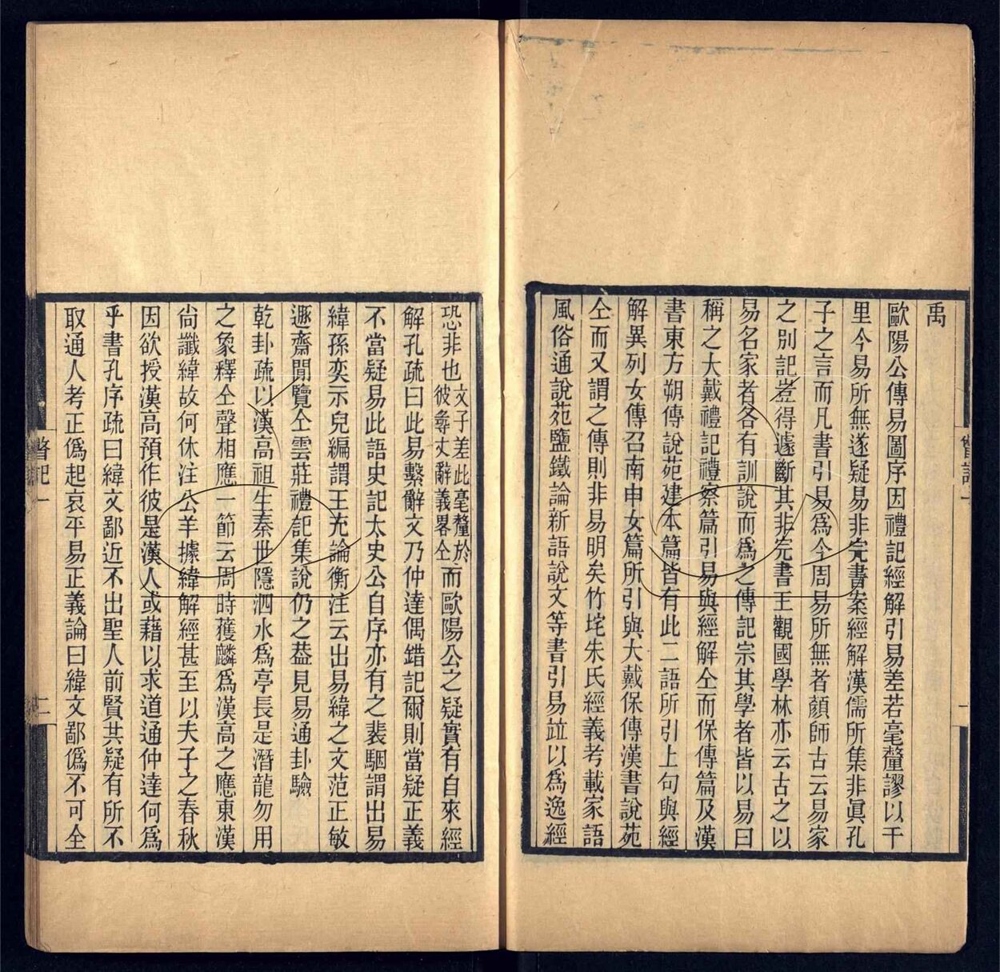 禹
歐陽公傳易圖序因禮記經解引易差若毫釐謬以千
里今易所無遂疑易非完書案經解漢儒所集非眞孔
子之言而凡書引易爲今周易所無者顏師古云易家
之別記豈得遽斷其非完書王觀國學林亦云古之以
易名家者各有訓說而爲之傳記宗其學者皆以易曰
稱之大戴禮記禮察篇引易與經解仝而保傅篇及漢
書東方朔傳說苑建本篇皆有此二語所引上句與經
解異列女傳召南申女篇所引與大戴保傅漢書說苑
仝而又謂之傳則非易明矣竹垞朱氏經義考載家語
風俗通說苑鹽鐵論新語說文等書引易竝以爲逸經
瞥記一
恐非也文子差此毫釐於彼尋丈辭義畧仝而歐陽公之疑實有自來經
解孔疏曰此易繫辭文乃仲達偶錯記爾則當疑正義
不當疑易此語史記太史公自序亦有之裴駰謂出易
緯孫奕示兒編謂王充論衡注云出易緯之文范正敏
遯齋閒覽仝雲莊禮記集說仍之葢見易通卦驗
乾卦疏以漢高祖生秦世隱泗水爲亭長是潛龍勿用
之象釋仝聲相應一節云周時獲麟爲漢高之應東漢
尙讖緯故何休注公羊據緯解經甚至以夫子之春秋
因欲授漢高預作彼是漢人或藉以求道通仲達何爲
乎書孔序疏曰緯文鄙近不出聖人前賢共疑有所不
取通人考正僞起哀平易正義論曰緯文鄙僞不可全
瞥記一
二